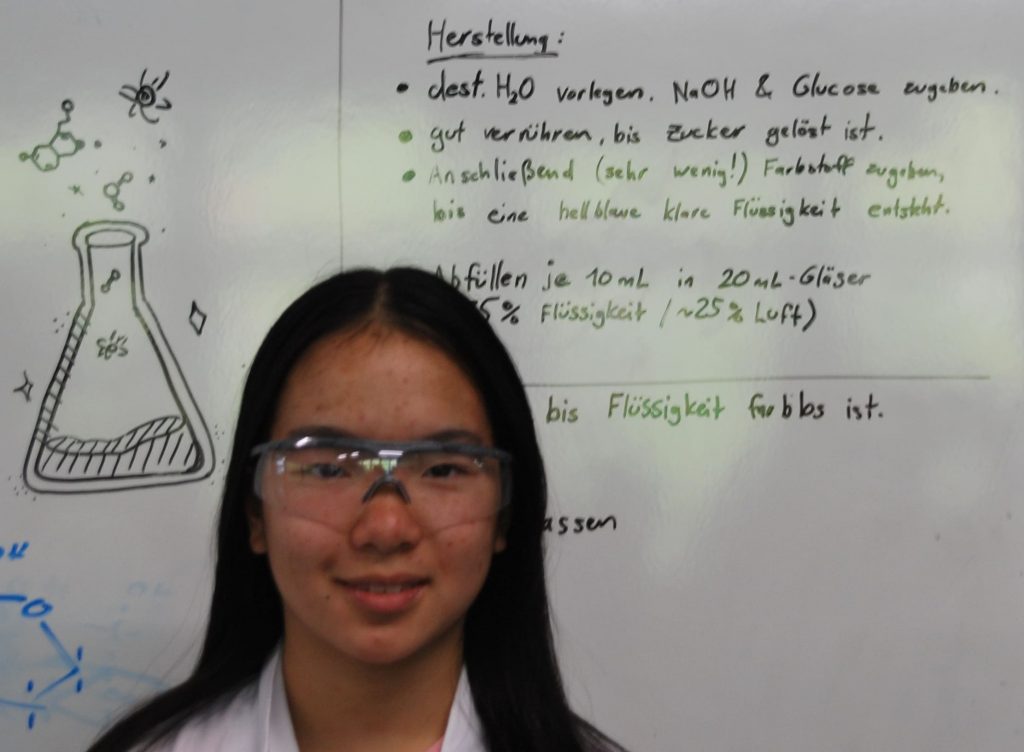 Herstellung:
• dest. H₂O vorlegen. NaOH & Glucose zugeben.
• gut verrühren, bis Zucker gelöst ist.
• Anschließend (sehr wenig!) Farbstoff zugeben,
bis eine hellblaue klare Flüssigkeit entsteht.
Abfüllen je 10 mL in 20 mL-Gläser
5% Flüssigkeit / ~25% Luft)
bis Flüssigkeit farblos ist.
assen
O